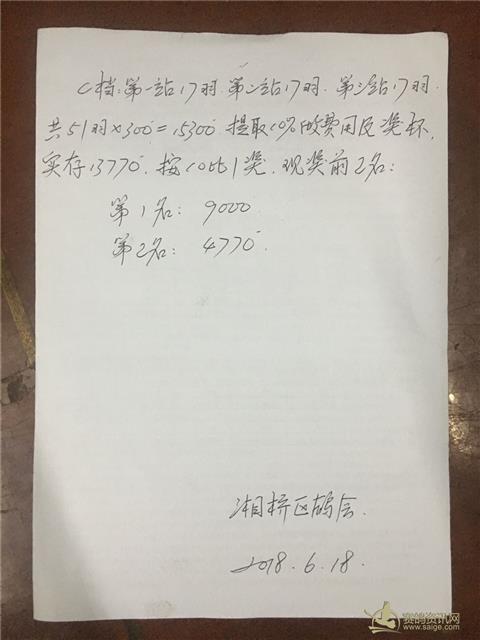 C档:第一站17羽.第二站17羽.第三站17羽.
共51羽×300=15300.提取10%做费用及奖杯.
实存13770.按10比1奖.现奖前2名:
第1名: 9000
第2名: 4770
湘桥区鸽会.
2018.6.18.
赛鸽资讯网
www.saige.com